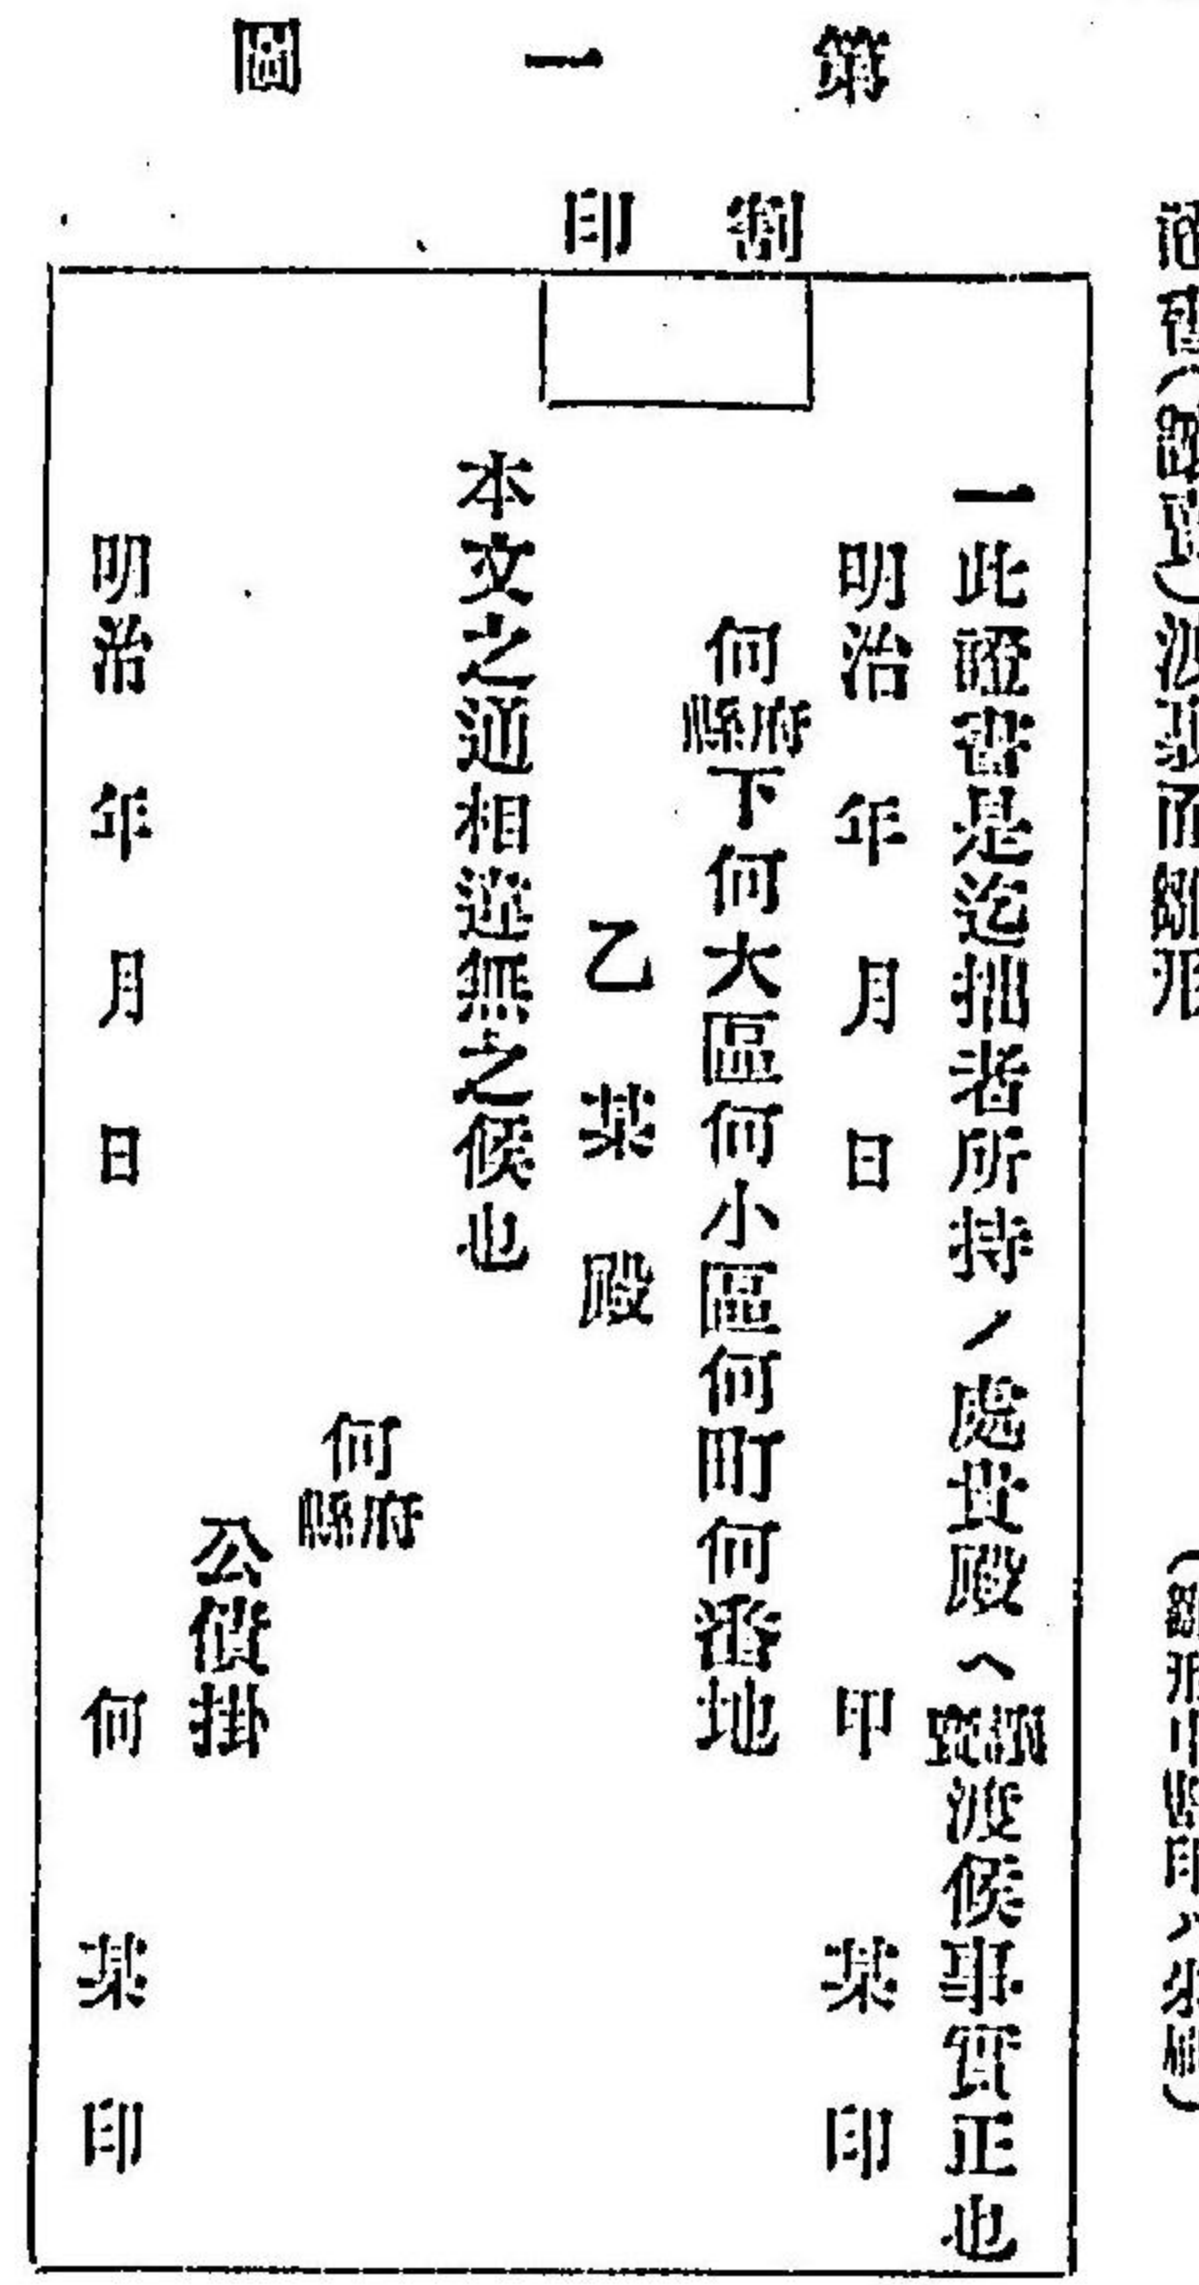 第一圖
割印
一此證書是迄拙者所持ノ處貴殿ヘ讓賣渡候事實正也
明治 年 月 日 甲 某 印
何府縣下何大區何小區何町何番地
乙 某 殿
本文之通相違無之候也
何府縣
公債掛
明治 年 月 日 何 某 印